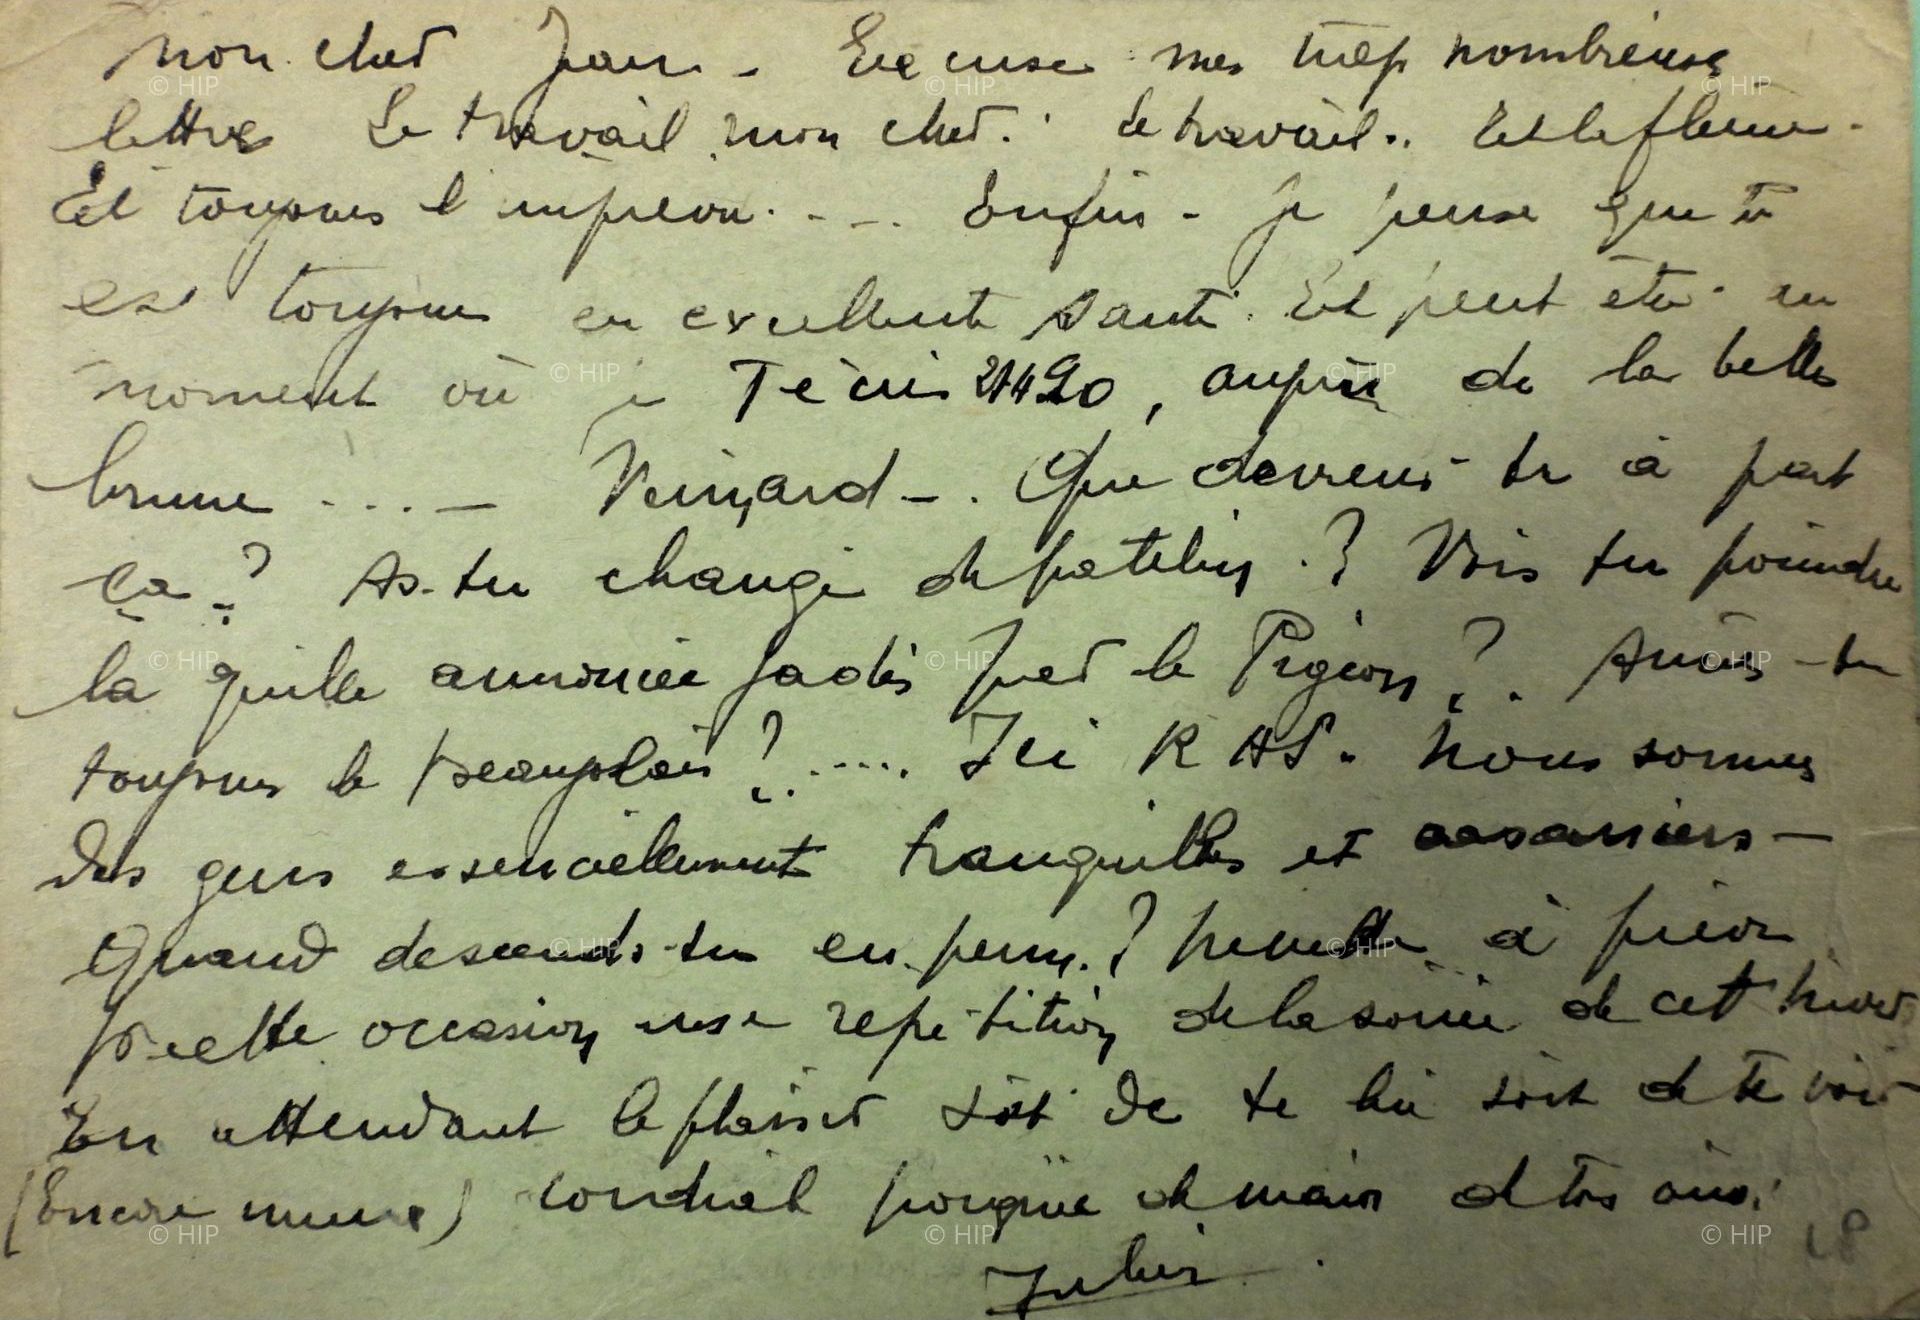 mon cher Jean - Excuse mes trop nombreuses
lettres Le travail mon cher. Le travail.. Et la flemme -
Et toujours l'imprevu. - - .. Enfin - je pense que tu
est toujours en excellente santé. Et peut être au
moment où je T'écris , auprès de la belle
brune . . . . - Veinard - . Que deviens-tu à part
ça ? As-tu changé de patelin . ? Vois tu poindre
la quille annoncée jadis par le Pigeon ? . Auras-tu
toujours le ? ..... Ici R A S. Nous sommes
des gens essenciellement tranquilles et casaniers -
Quand descends-tu en perm. ? à prévoir
pr cette occasion une repetition de la soirée de cet hiver
En attendant le plaisir soit de te lire soit de te voir
(Encore mieux) cordial poignée de main de tes amis.
Julien
18
© HIP